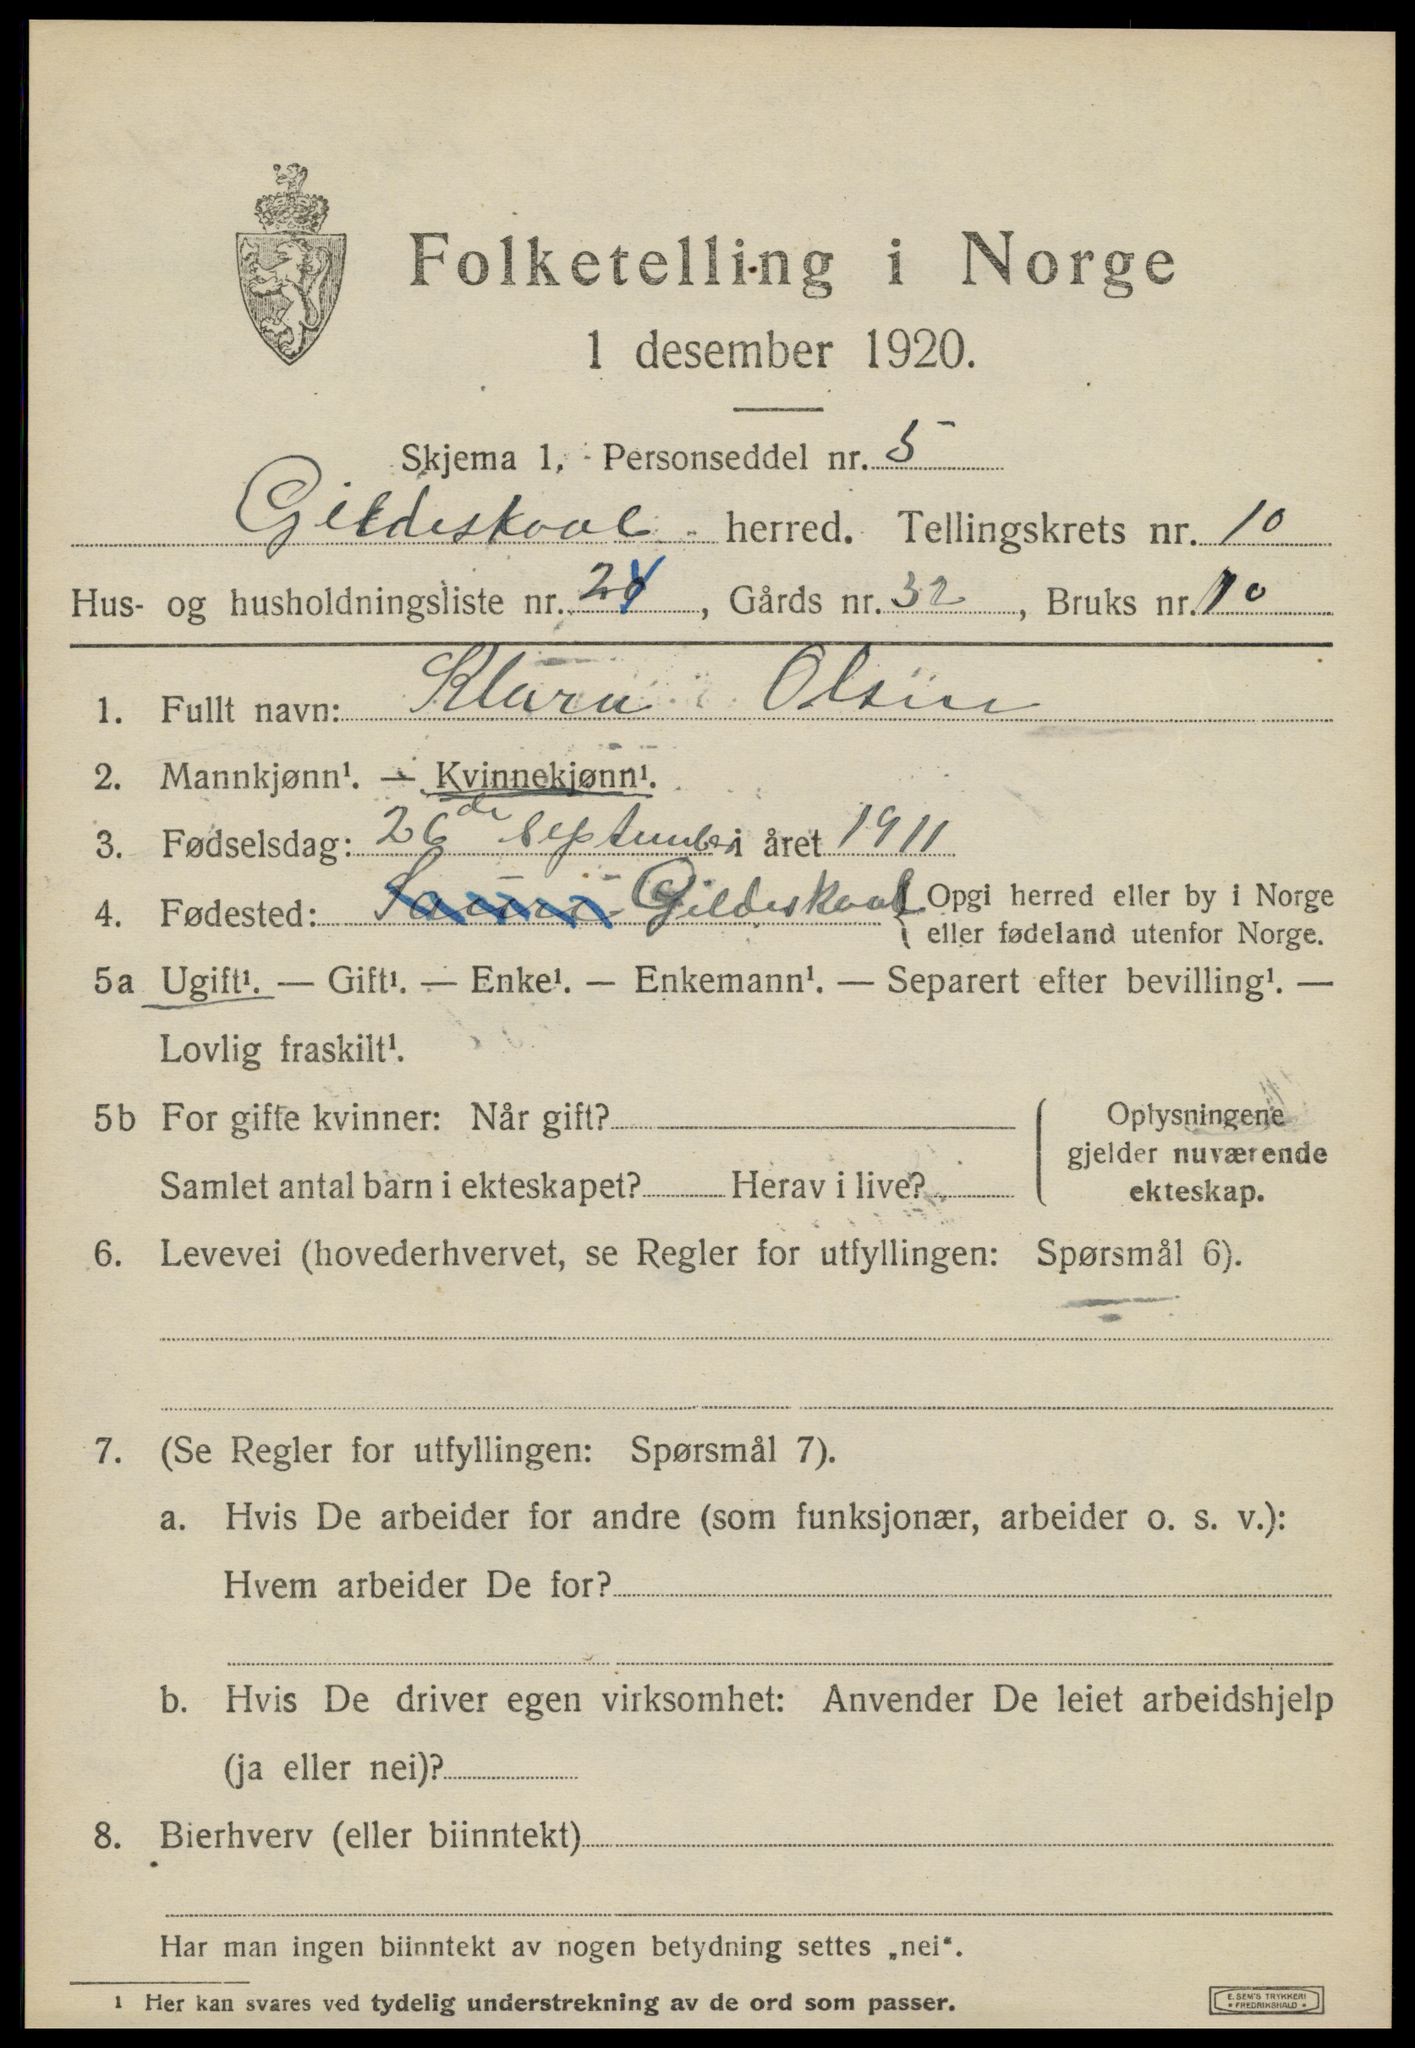 Folketelling i Norge
1 desember 1920.
Skjema 1, Personseddel nr. 5
Gildeskaal herred. Tellingskrets nr. 10
Hus- og husholdningsliste nr. 24, Gårds nr. 32, Bruks nr. 10
1. Fullt navn: Klara Olsen
2. Mannkjønn¹. — Kvinnekjønn¹.
3. Fødselsdag: 26de September i året 1911
4. Fødested: Gildeskaal { Opgi herred eller by i Norge
eller fødeland utenfor Norge.
5a Ugift¹. — Gift¹. — Enke¹. — Enkemann¹. — Separert efter bevilling¹. —
Lovlig fraskilt¹.
5b For gifte kvinner: Når gift?
Samlet antal barn i ekteskapet? Herav i live?
Oplysningene
gjelder nuværende
ekteskap.
6. Levevei (hovederhvervet, se Regler for utfyllingen: Spørsmål 6).
7. (Se Regler for utfyllingen: Spørsmål 7).
a. Hvis De arbeider for andre (som funksjonær, arbeider o. s. v.):
Hvem arbeider De for?
b. Hvis De driver egen virksomhet: Anvender De leiet arbeidshjelp
(ja eller nei)?
8. Bierhverv (eller biinntekt)
Har man ingen biinntekt av nogen betydning settes „nei“.
1 Her kan svares ved tydelig understrekning av de ord som passer.
E. SEM'S TRYKKERI
• FREDRIKSHALD •